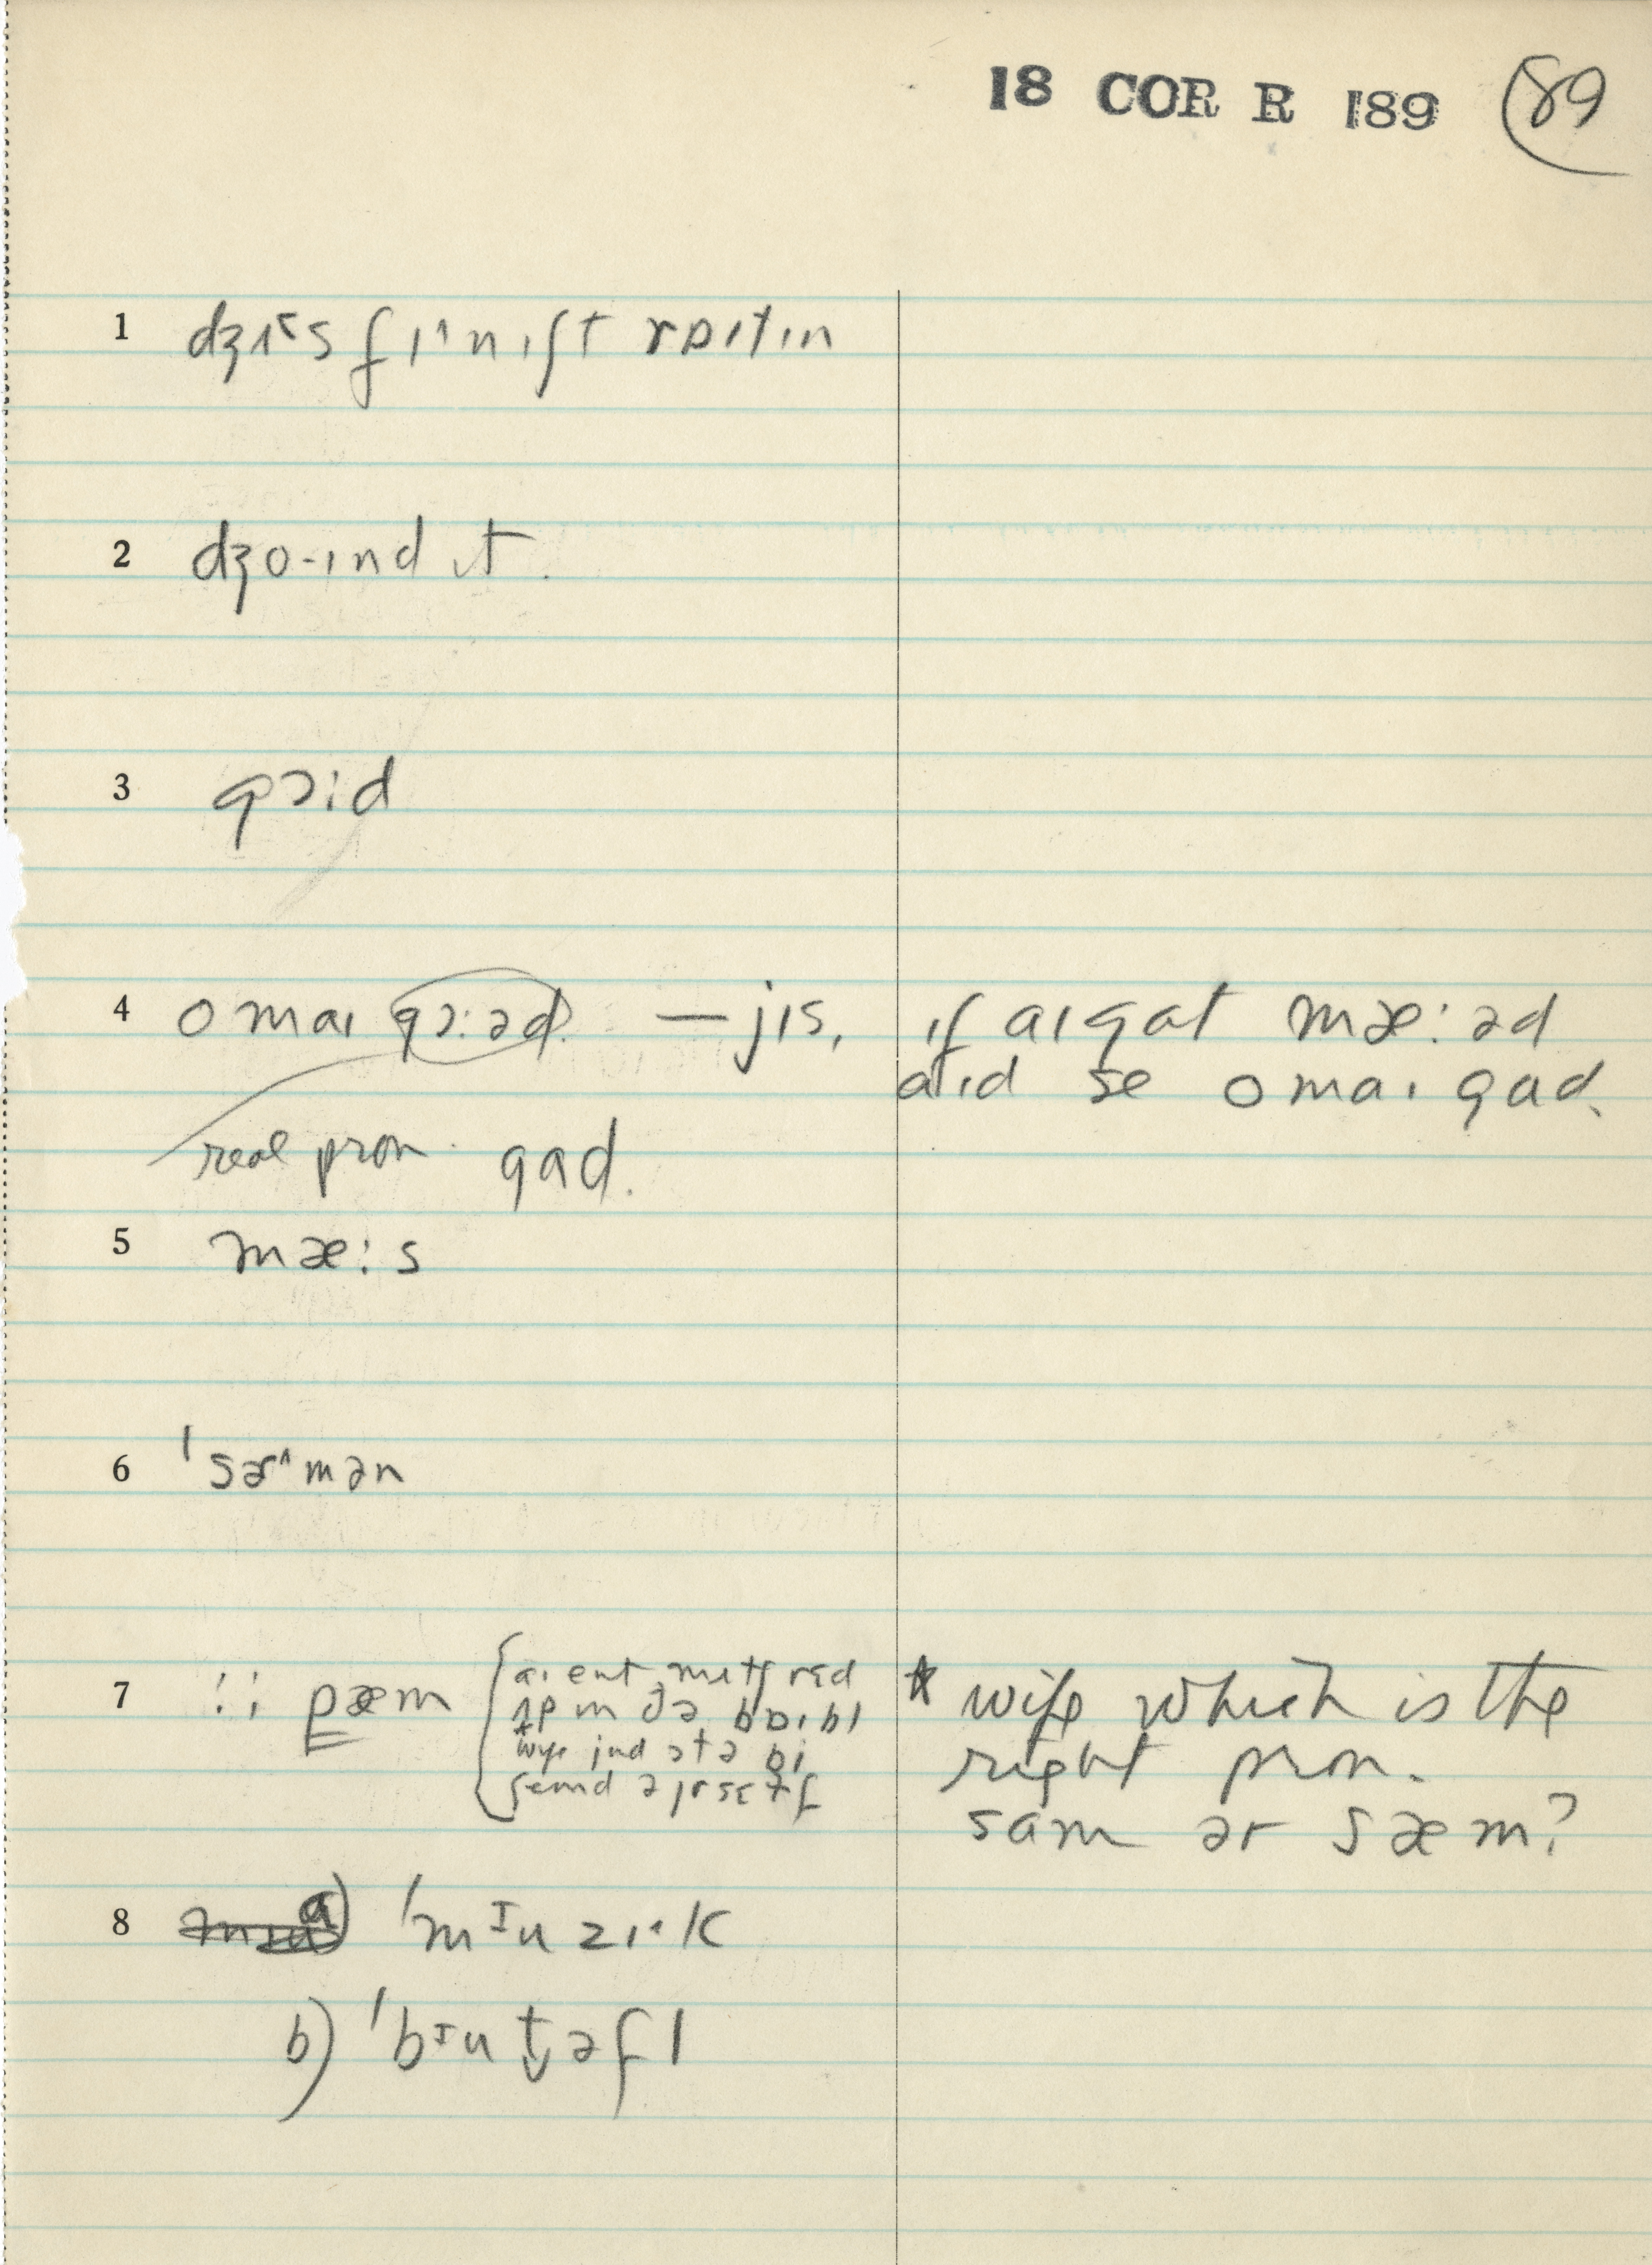 18 COR R 189 89
1 dʒɪ^s fɪ^nɪʃt rɒɪtɪn
2 dʒo·ɪnd ɪt.
3 gɔːd
4 o maɪ gɔːəd. — jɪs, ɪf aɪ gat mæːəd
aɪd se o maɪ gad.
real pron. gad.
5 mæːs
6 ˈsɚ^mən
7 :: pæm { aɪ ent mʌtʃ rɛd
ʌp ɪn ðə bɒɪbl
* wife jud ɔtə bi
* wife which is the
right pron.
sam ər sæm?
8 a) ˈmɪuzɪ·k
b) ˈbɪut̬əfl